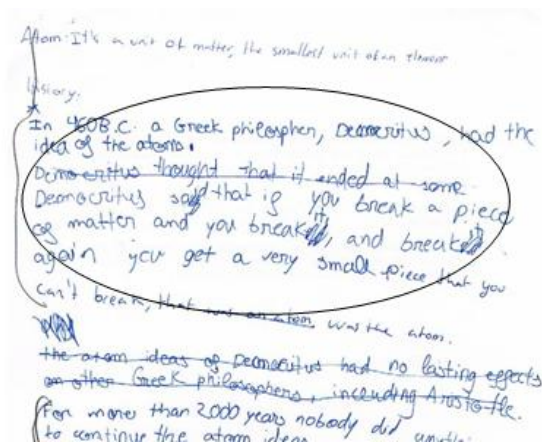 Atom: It's a unit of matter, the smallest unit of an element
History:
In 460 B.C. a Greek philospher, Democritus, had the
idea of the atoms.
Democritus thought that it ended at some
Democritus said that if you break a piece
of matter and you break it, and break it
again you get a very small piece that you
can't break, that was an atom, was the atom.
the atom ideas of Democritus had no lasting effects
on other Greek philosophers, including Aristotle.
For more than 2000 years nobody did
to continue the atom ideas